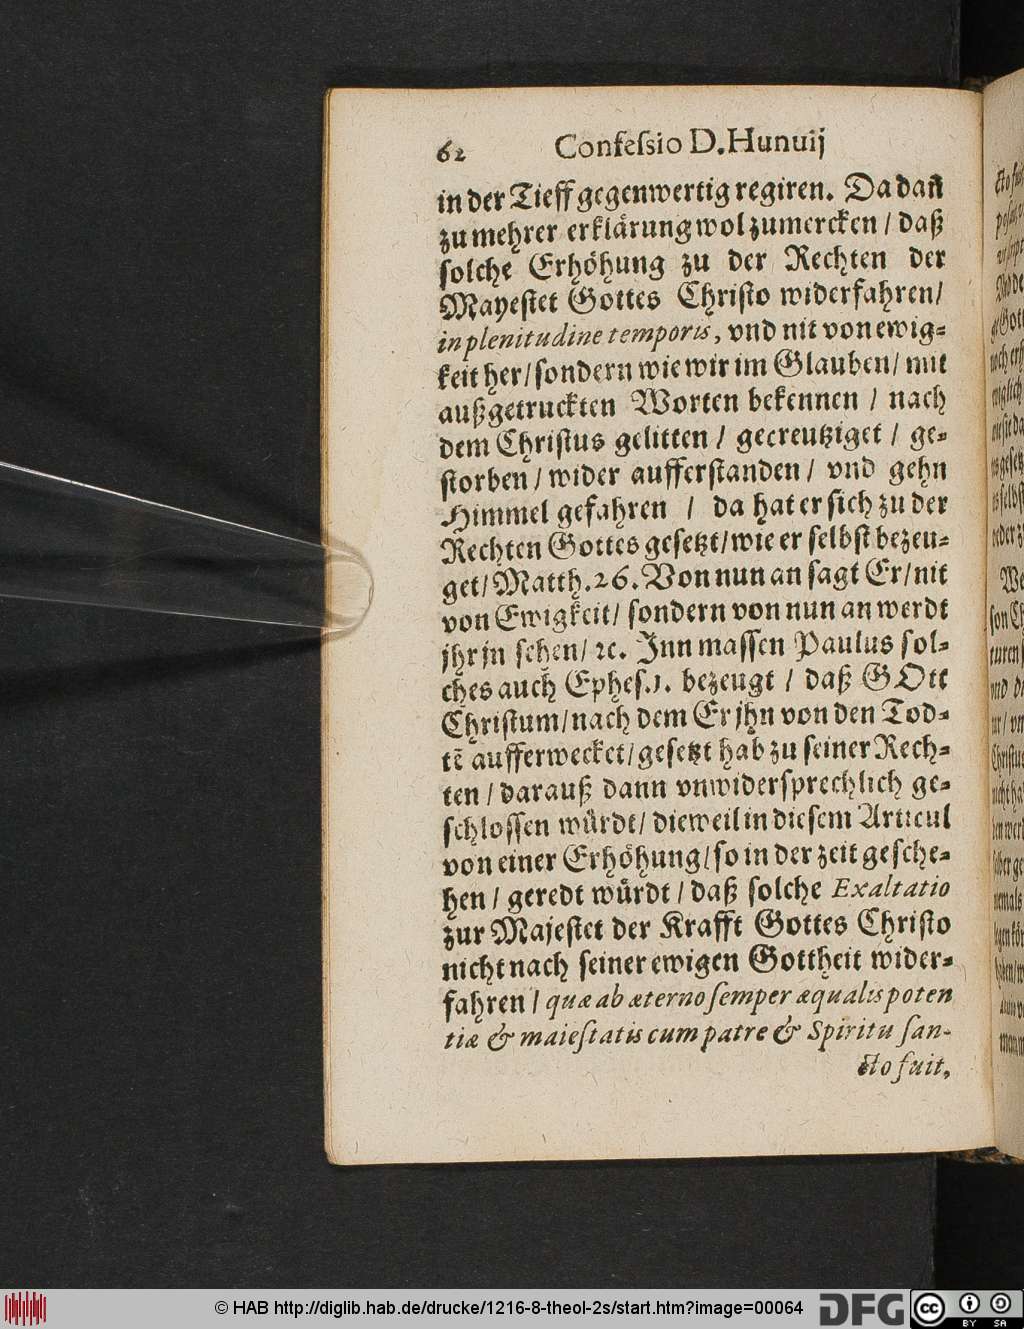 62 Confeſsio D. Hunuij
in der Tieff gegenwertig regiren. Da dañ
zu mehrer erklårung wol zumercken / daß
ſolche Erhöhung zu der Rechten der
Mayeſtet Gottes Chriſto widerfahren/
in plenitudine temporis, vnd nit von ewig⸗
keit her/ ſondern wie wir im Glauben/ mit
außgetruckten Worten bekennen / nach
dem Chriſtus gelitten / gecreutziget / ge⸗
ſtorben / wider aufferſtanden / vnd gehn
Himmel gefahren / da hat er ſich zu der
Rechten Gottes geſetzt/ wie er ſelbſt bezeu⸗
get/ Matth. 26. Von nun an ſagt Er/ nit
von Ewigkeit/ ſondern von nun an werdt
jhr jn ſehen/ ꝛc. Inn maſſen Paulus ſol⸗
ches auch Epheſ. 1. bezeugt / daß GOtt
Chriſtum/ nach dem Er jhn von den Tod⸗
tẽ aufferwecket/ geſetzt hab zu ſeiner Rech⸗
ten / darauß dann vnwiderſprechlich ge⸗
ſchloſſen wůrdt/ dieweil in dieſem Articul
von einer Erhöhung/ ſo in der zeit geſche⸗
hen / geredt wůrdt / daß ſolche Exaltatio
zur Majeſtet der Krafft Gottes Chriſto
nicht nach ſeiner ewigen Gottheit wider⸗
fahren / quæ ab æterno ſemper æqualis poten
tiæ & maieſtatis cum patre & Spiritu ſan-
cto fuit,
© HAB http://diglib.hab.de/drucke/1216-8-theol-2s/start.htm?image=00064
DFG
cc BY SA